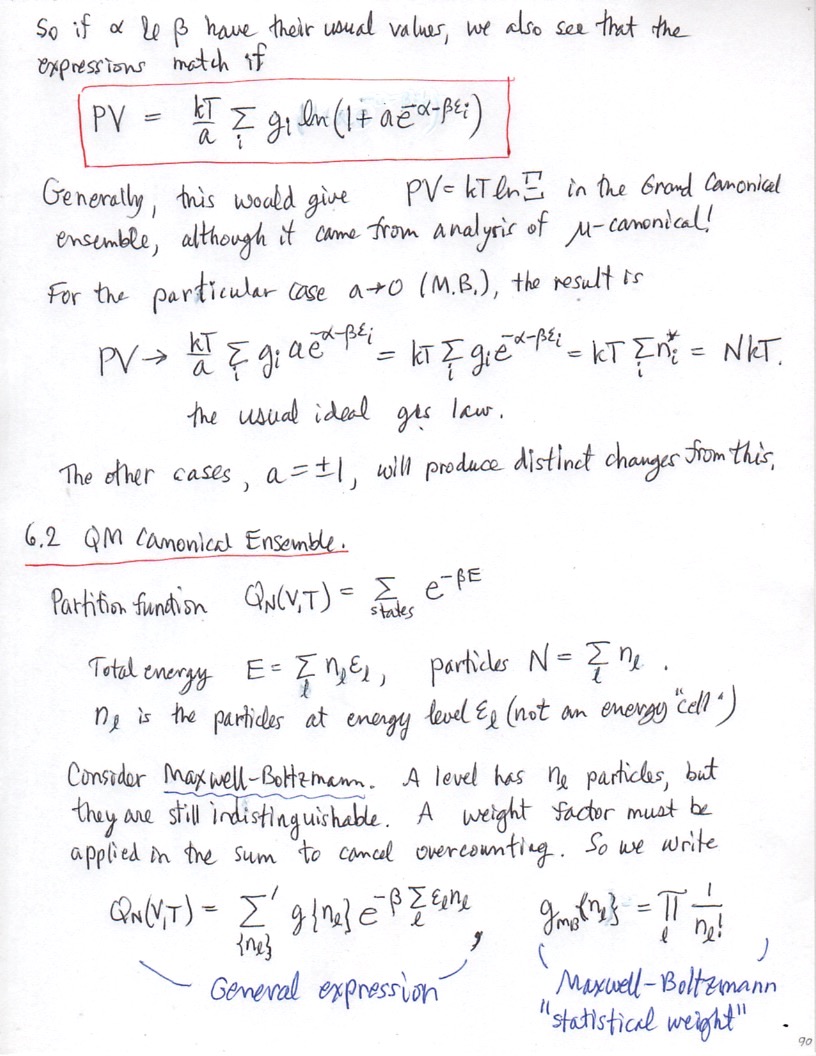 So if α & β have their usual values, we also see that the
expressions match if
PV = kT/a Σ_i g_i ln(1 + a e^{-α-βε_i})
Generally, this would give PV = kT ln Ξ in the Grand Canonical
ensemble, although it came from analysis of μ-canonical!
For the particular case a→0 (M.B.), the result is
PV → kT/a Σ_i g_i a e^{-α-βε_i} = kT Σ_i g_i e^{-α-βε_i} = kT Σ_i n_i^* = NkT.
the usual ideal gas law.
The other cases, a = ±1, will produce distinct changes from this.
6.2 QM Canonical Ensemble.
Partition function Q_N(V,T) = Σ_{states} e^{-βE}
Total energy E = Σ_l n_l ε_l, particles N = Σ_l n_l.
n_l is the particles at energy level ε_l (not an energy "cell")
Consider Maxwell-Boltzmann. A level has n_l particles, but
they are still indistinguishable. A weight factor must be
applied in the sum to cancel overcounting. So we write
Q_N(V,T) = Σ'_{{n_l}} g{n_l} e^{-β Σ_l ε_l n_l}, g_{MB}{n_l} = Π_l 1/n_l!
General expression Maxwell-Boltzmann
"statistical weight"
90